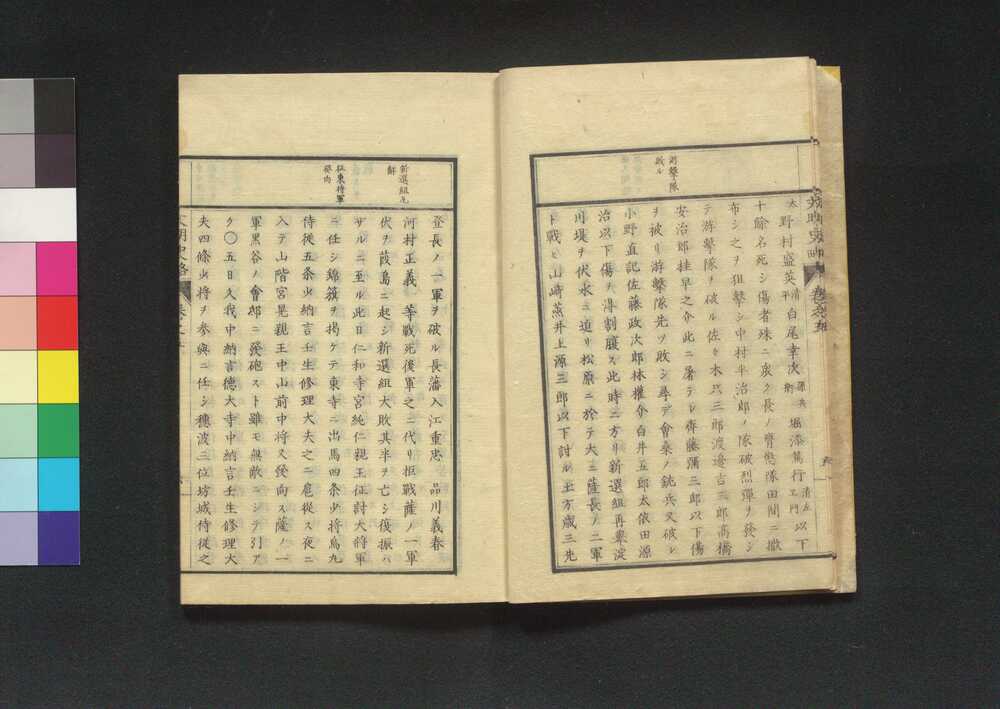 游擊隊
敗ル
太 野村盛英 清平 白尾幸次 源兵衛 堀添篤行 清左エ門 以下
十餘名死シ傷者殊ニ夥ク長ノ膺懲隊田間ニ撒
布シ之ヲ狙擊シ中村半治郎ノ隊破烈彈ヲ發シ
テ游擊隊ヲ破ル佐々木只三郎渡邉吉三郎高橋
安治郎桂早之介此ニ屠テレ齊藤彌三郎以下傷
ヲ被リ游擊隊先ツ敗シ尋デ會桑ノ銃兵又破レ
小野直記佐藤政次郎林權介白井五郎太依田源
治以下傷ヲ ス此時ニ方リ新選組再擧淀
川堤ヲ伏水ニ迫リ松原ニ於テ大ニ薩長ノ二軍
ト戰ヒ山崎烝井上源三郎以下討ル土方歳三先
新選組先
征東將軍
登長ノ一軍ヲ破ル長藩入江重忠 品川義春
河村正義 等戰死後軍之ニ代リ拒戰薩ノ一軍
伏ヲ葭島ニ起シ新選組大敗其半ヲ亡シ復振ハ
ザルニ至ル此日仁和寺宮純仁親王征討大將軍
ニ任シ錦籏ヲ揭ケテ東寺ニ出馬四条少將烏丸
侍從五条少納言壬生修理大夫之ニ扈從ス夜ニ
入テ山階宮晃親王中山前中將又發向ス薩ノ一
軍黒谷ノ會邸ニ發砲スト雖モ無敵ニシテ引ア
ク〇五日久我中納言德大寺中納言壬生修理大
夫四條少將ヲ參與ニ任シ穗波三位坊城侍從之